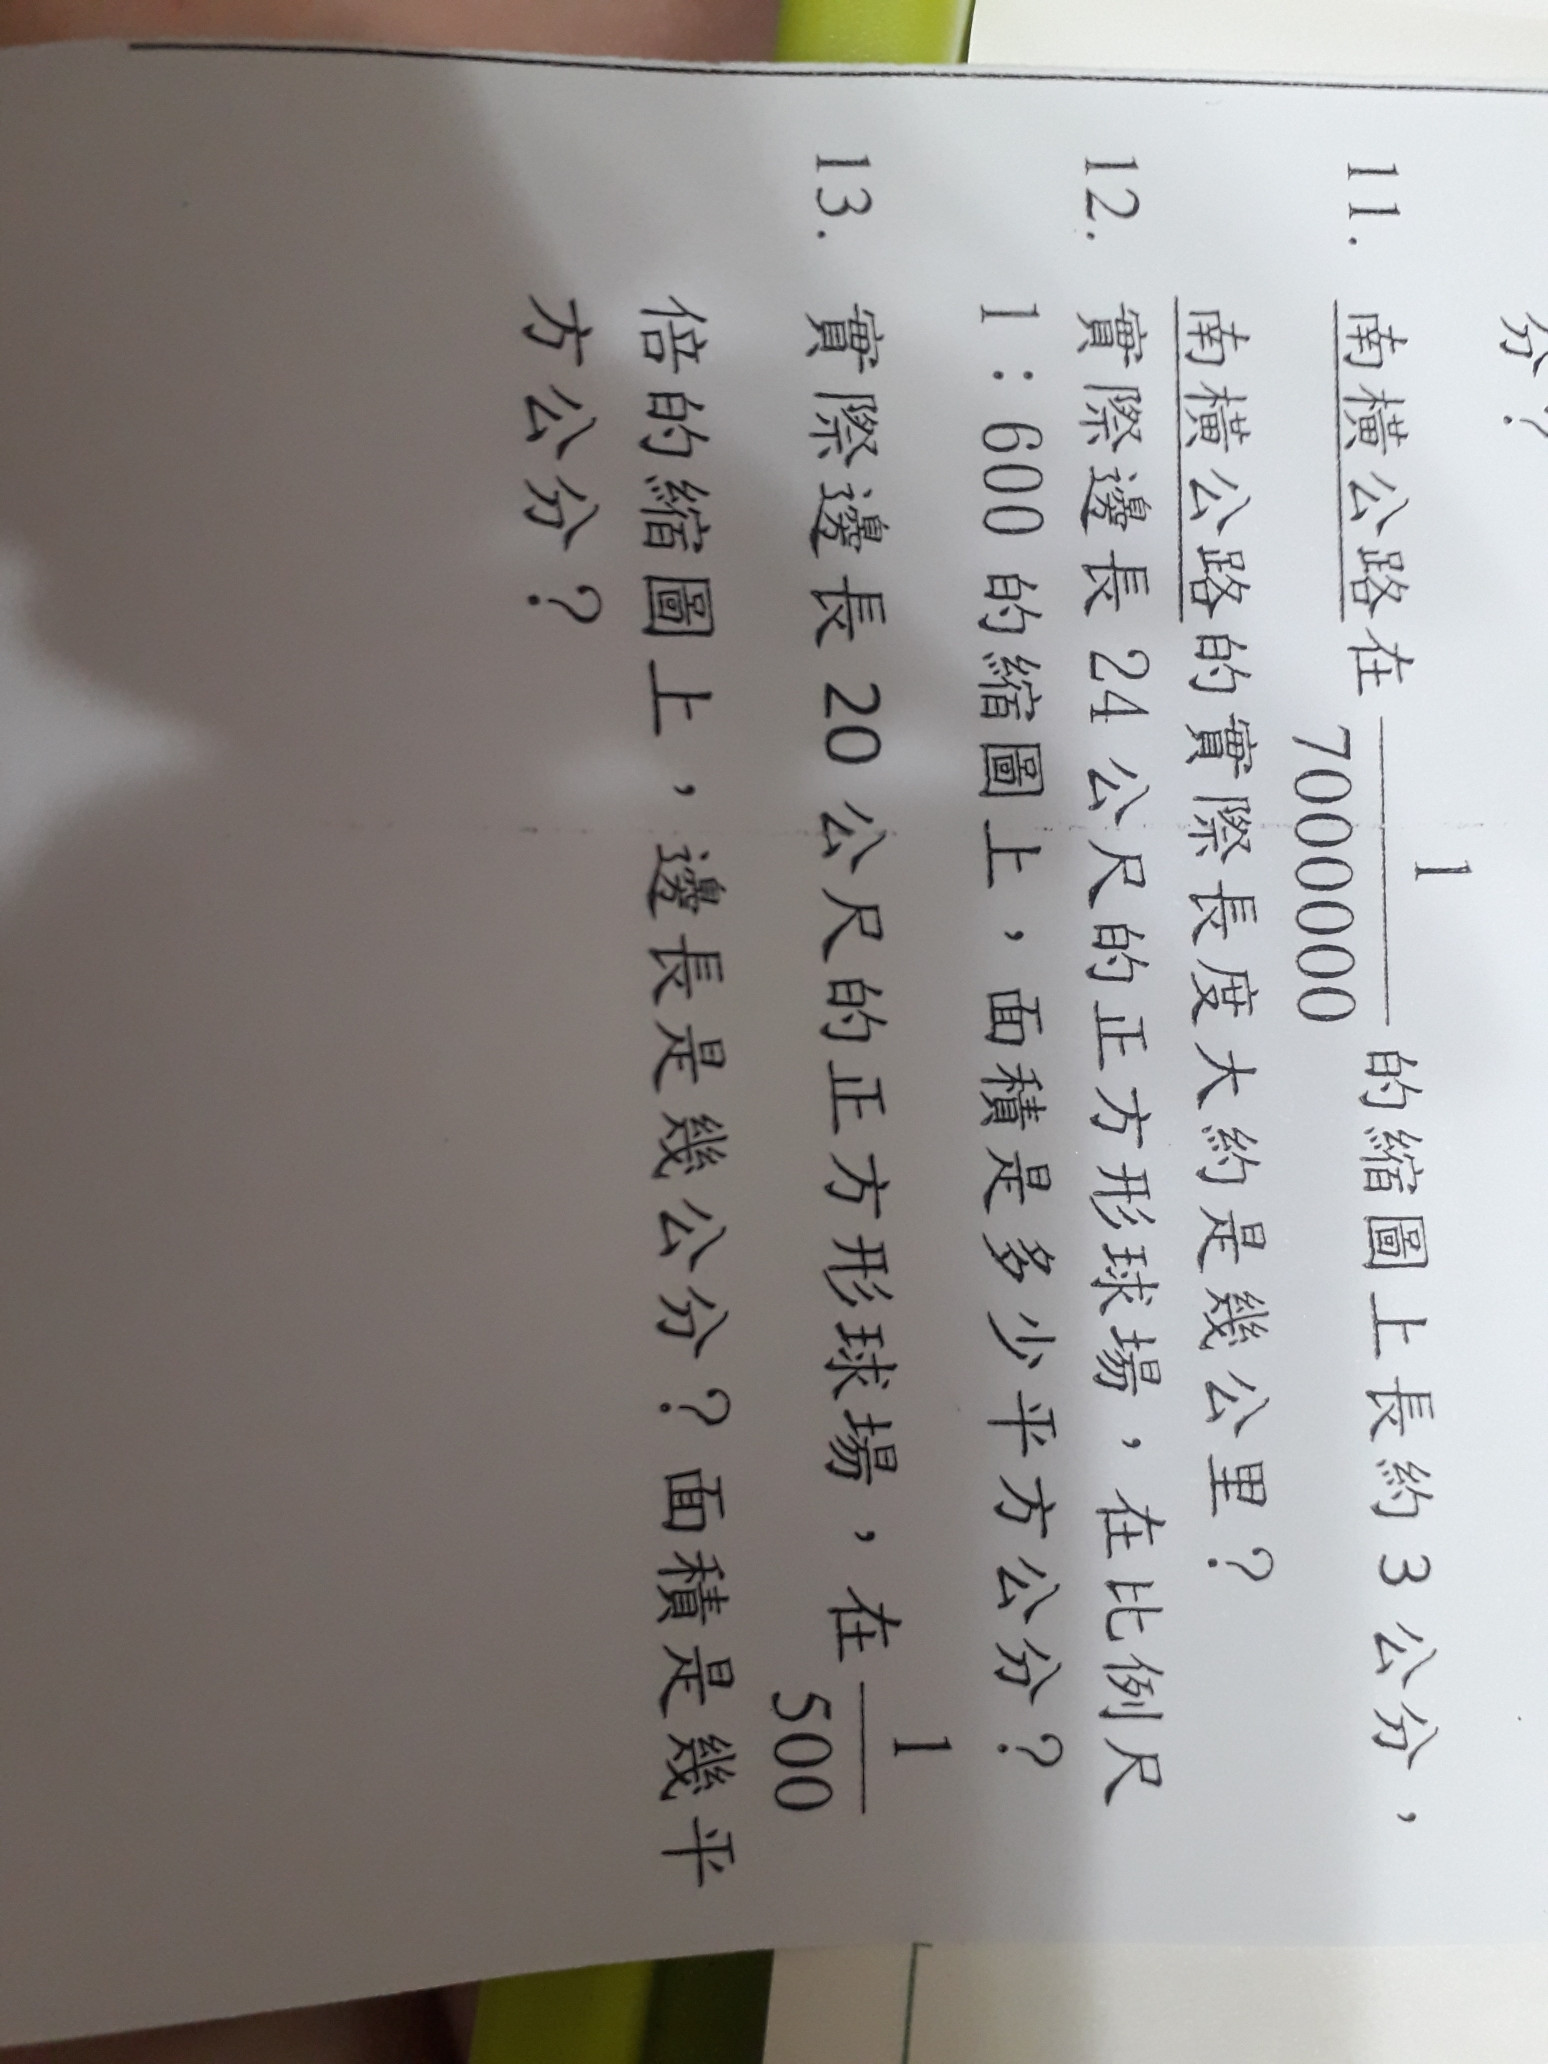 分？
11. 南橫公路在 1/7000000 的縮圖上長約 3 公分，
南橫公路的實際長度大約是幾公里？
12. 實際邊長 24 公尺的正方形球場，在比例尺
1：600 的縮圖上，面積是多少平方公分？
13. 實際邊長 20 公尺的正方形球場，在 1/500
倍的縮圖上，邊長是幾公分？面積是幾平
方公分？